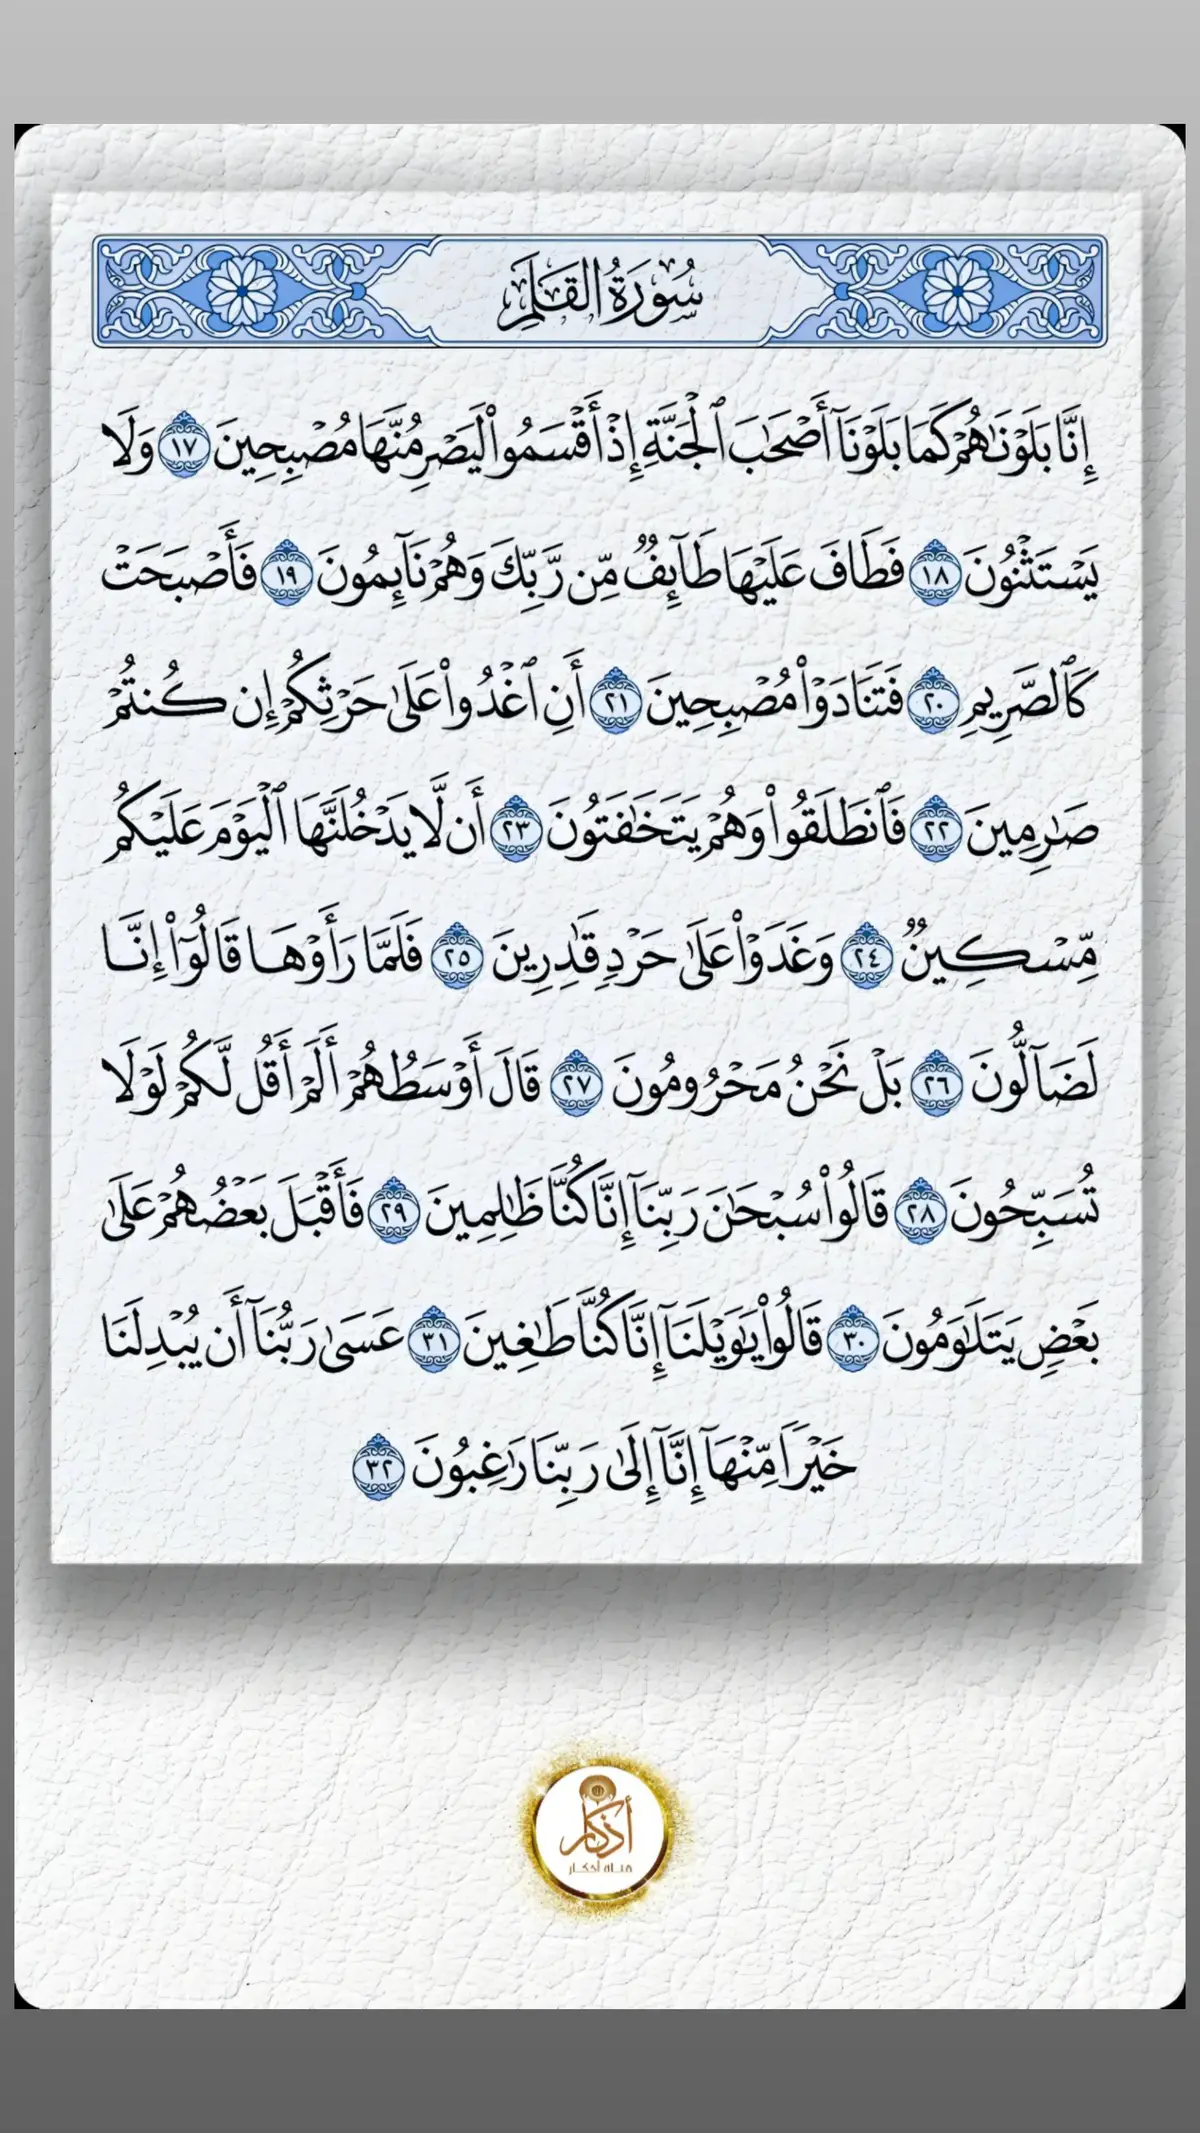 سُورَةُ القَلَمِ
إِنَّا بَلَوْنَٰهُمْ كَمَا بَلَوْنَآ أَصْحَٰبَ ٱلْجَنَّةِ إِذْ أَقْسَمُوا۟ لَيَصْرِمُنَّهَا مُصْبِحِينَ ١٧ وَلَا
يَسْتَثْنُونَ ١٨ فَطَافَ عَلَيْهَا طَآئِفٌ مِّن رَّبِّكَ وَهُمْ نَآئِمُونَ ١٩ فَأَصْبَحَتْ
كَٱلصَّرِيمِ ٢٠ فَتَنَادَوْا۟ مُصْبِحِينَ ٢١ أَنِ ٱغْدُوا۟ عَلَىٰ حَرْثِكُمْ إِن كُنتُمْ
صَٰرِمِينَ ٢٢ فَٱنطَلَقُوا۟ وَهُمْ يَتَخَٰفَتُونَ ٢٣ أَن لَّا يَدْخُلَنَّهَا ٱلْيَوْمَ عَلَيْكُم
مِّسْكِينٌ ٢٤ وَغَدَوْا۟ عَلَىٰ حَرْدٍ قَٰدِرِينَ ٢٥ فَلَمَّا رَأَوْهَا قَالُوٓا۟ إِنَّا
لَضَآلُّونَ ٢٦ بَلْ نَحْنُ مَحْرُومُونَ ٢٧ قَالَ أَوْسَطُهُمْ أَلَمْ أَقُل لَّكُمْ لَوْلَا
تُسَبِّحُونَ ٢٨ قَالُوا۟ سُبْحَٰنَ رَبِّنَآ إِنَّا كُنَّا ظَٰلِمِينَ ٢٩ فَأَقْبَلَ بَعْضُهُمْ عَلَىٰ
بَعْضٍ يَتَلَٰوَمُونَ ٣٠ قَالُوا۟ يَٰوَيْلَنَآ إِنَّا كُنَّا طَٰغِينَ ٣١ عَسَىٰ رَبُّنَآ أَن يُبْدِلَنَا
خَيْرًا مِّنْهَآ إِنَّآ إِلَىٰ رَبِّنَا رَٰغِبُونَ ٣٢
أذكار
قناة أذكار